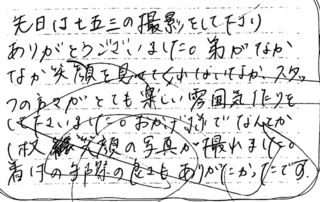 先日は七五三の撮影をして下さり
ありがとうございました。弟がなか
なか笑顔を見せてくれないなか、スタッ
フの方々がとても楽しい雰囲気作りを
してくださいました。おかげ様でなんとか
1枚 笑顔の写真が撮れました。
着付の手際の良さも ありがたかったです